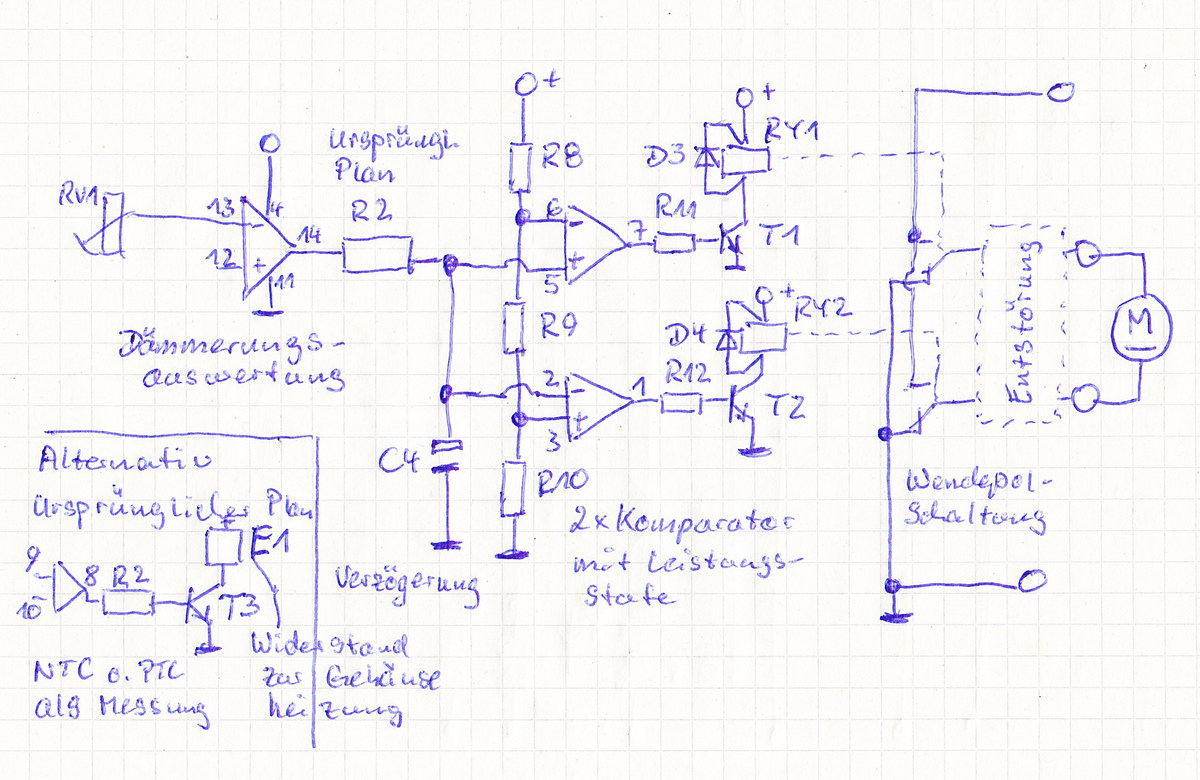 +
+
Ursprüngl.
Plan
R8
D3
RY1
RV1
13
4
R2
6
-
7
R11
T1
14
12
+
11
5
+
+
RY2
Dämmerungs-
auswertung
R9
D4
Entstörung
M
2
-
1
R12
T2
3
+
C4
R10
Alternativ
Ursprünglicher Plan
+
E1
9
8
R2
10
T3
Verzögerung
2xKomparator
mit Leistungs-
Stufe
Wendepol-
Schaltung
NTC o. PTC
als Messung
Widerstand
zur Gehäuse
heizung